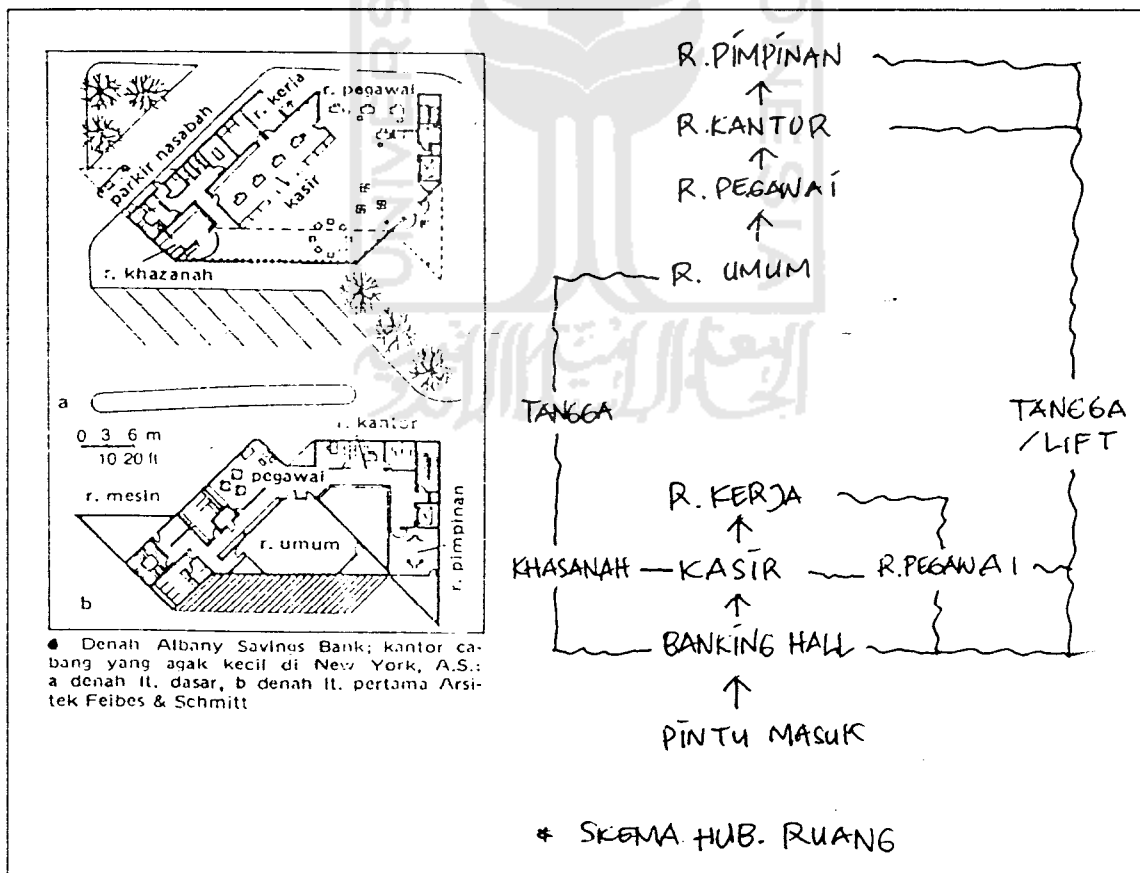 r. pegawai
r. kerja
parkir nasabah
kasir
r. khazanah
a
0 3 6 m
10 20 ft
r. kantor
pegawai
r. mesin
r. umum
r. pimpinan
b
Denah Albany Savings Bank; kantor ca-
bang yang agak kecil di New York, A.S.:
a denah lt. dasar, b denah lt. pertama Arsi-
tek Feibes & Schmitt
R. PIMPINAN
R. KANTOR
R. PEGAWAI
R. UMUM
TANGGA
TANGGA
/LIFT
R. KERJA
KHASANAH KASIR R. PEGAWAI
BANKING HALL
PINTU MASUK
* SKEMA HUB. RUANG
UNIVERS
ONESIA